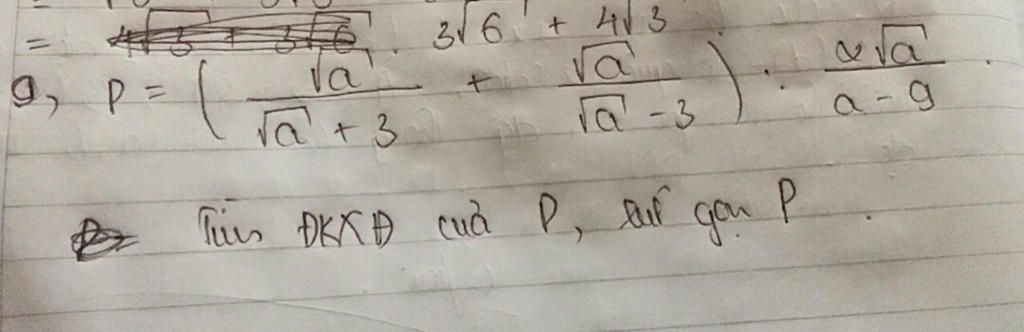 = 3√6 + 4√3
g, P = ( √a / (√a + 3) + √a / (√a - 3) ) : √a / (a - 9)
Tìm ĐKXĐ của P, rút gọn P.